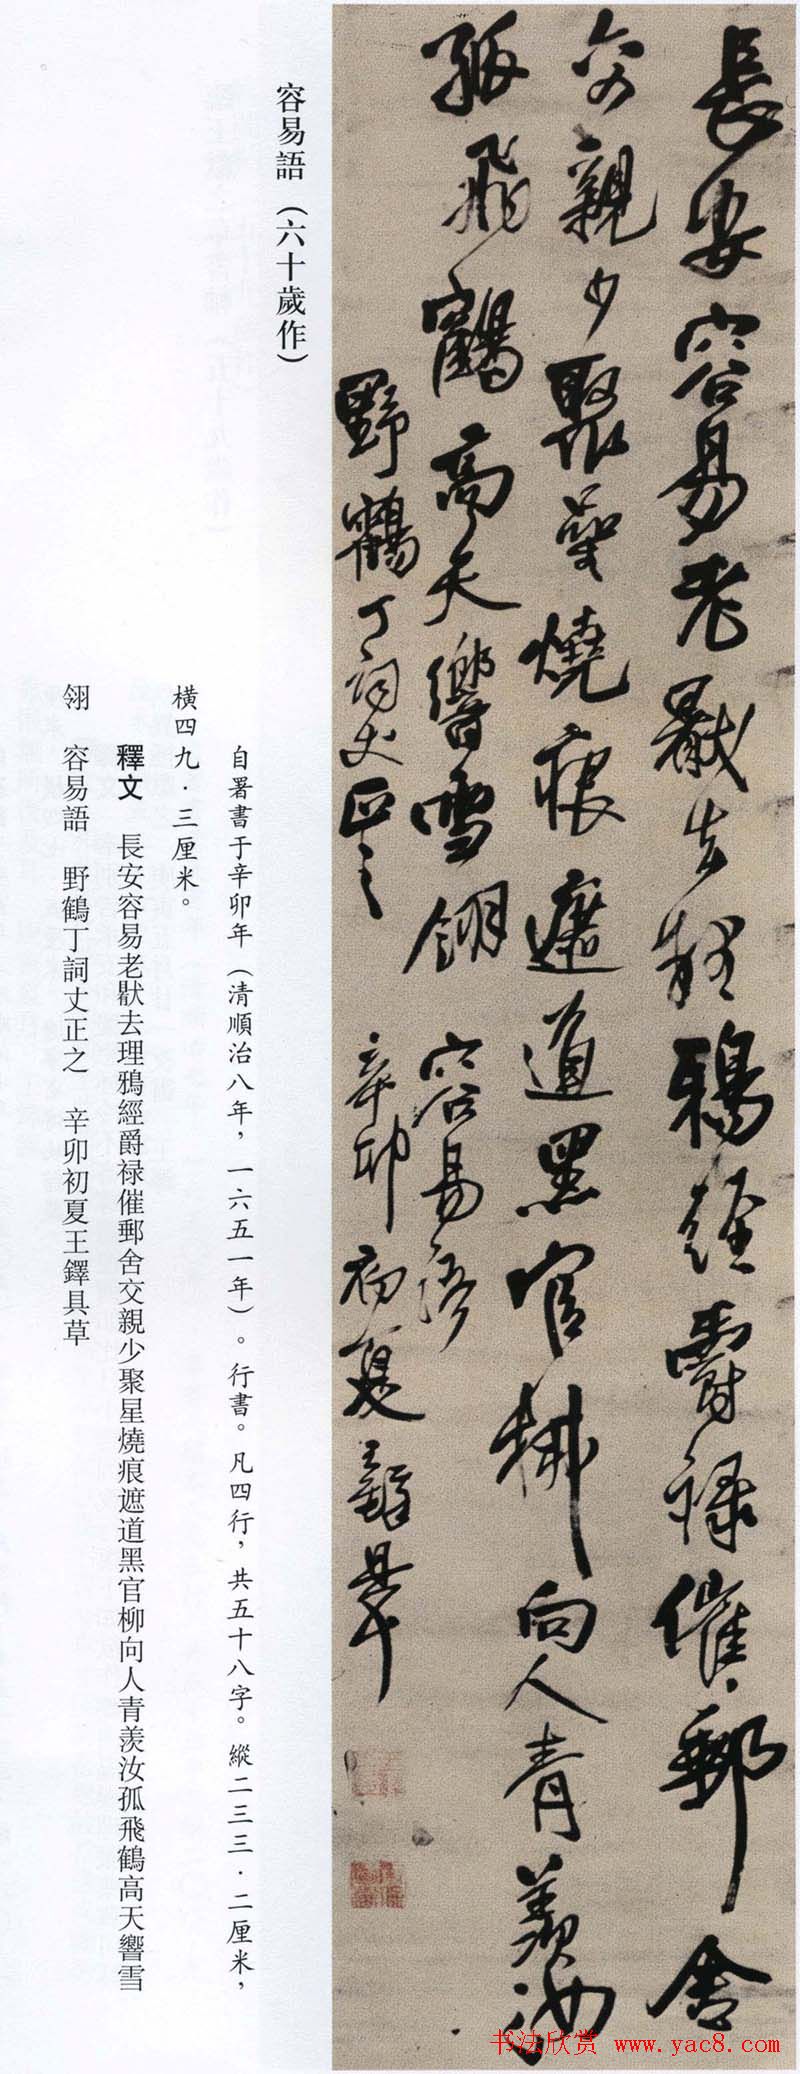 長安容易老猒去理鴉經爵禄催郵舍
交親少聚星燒痕遮道黑官柳向人青羨汝
孤飛鶴高天響雪翎 容易語
野鶴丁詞丈正之 辛卯初夏王鐸具草
容易語（六十歲作）
自署書于辛卯年（清順治八年，一六五一年）。行書。凡四行，共五十八字。縱二三三·二厘米，
橫四九·三厘米。
釋文 長安容易老猒去理鴉經爵禄催郵舍交親少聚星燒痕遮道黑官柳向人青羨汝孤飛鶴高天響雪
翎 容易語 野鶴丁詞丈正之 辛卯初夏王鐸具草
书法欣赏 www.yac8.com